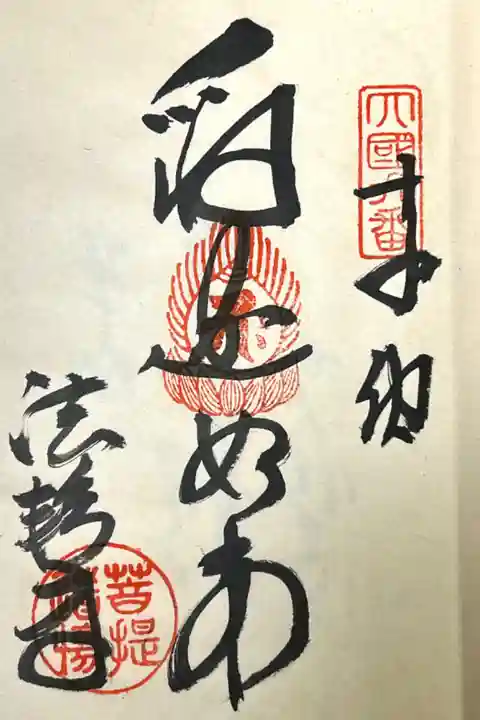 四國九番
奉納
釈迦如来
法輪寺
菩提
道場